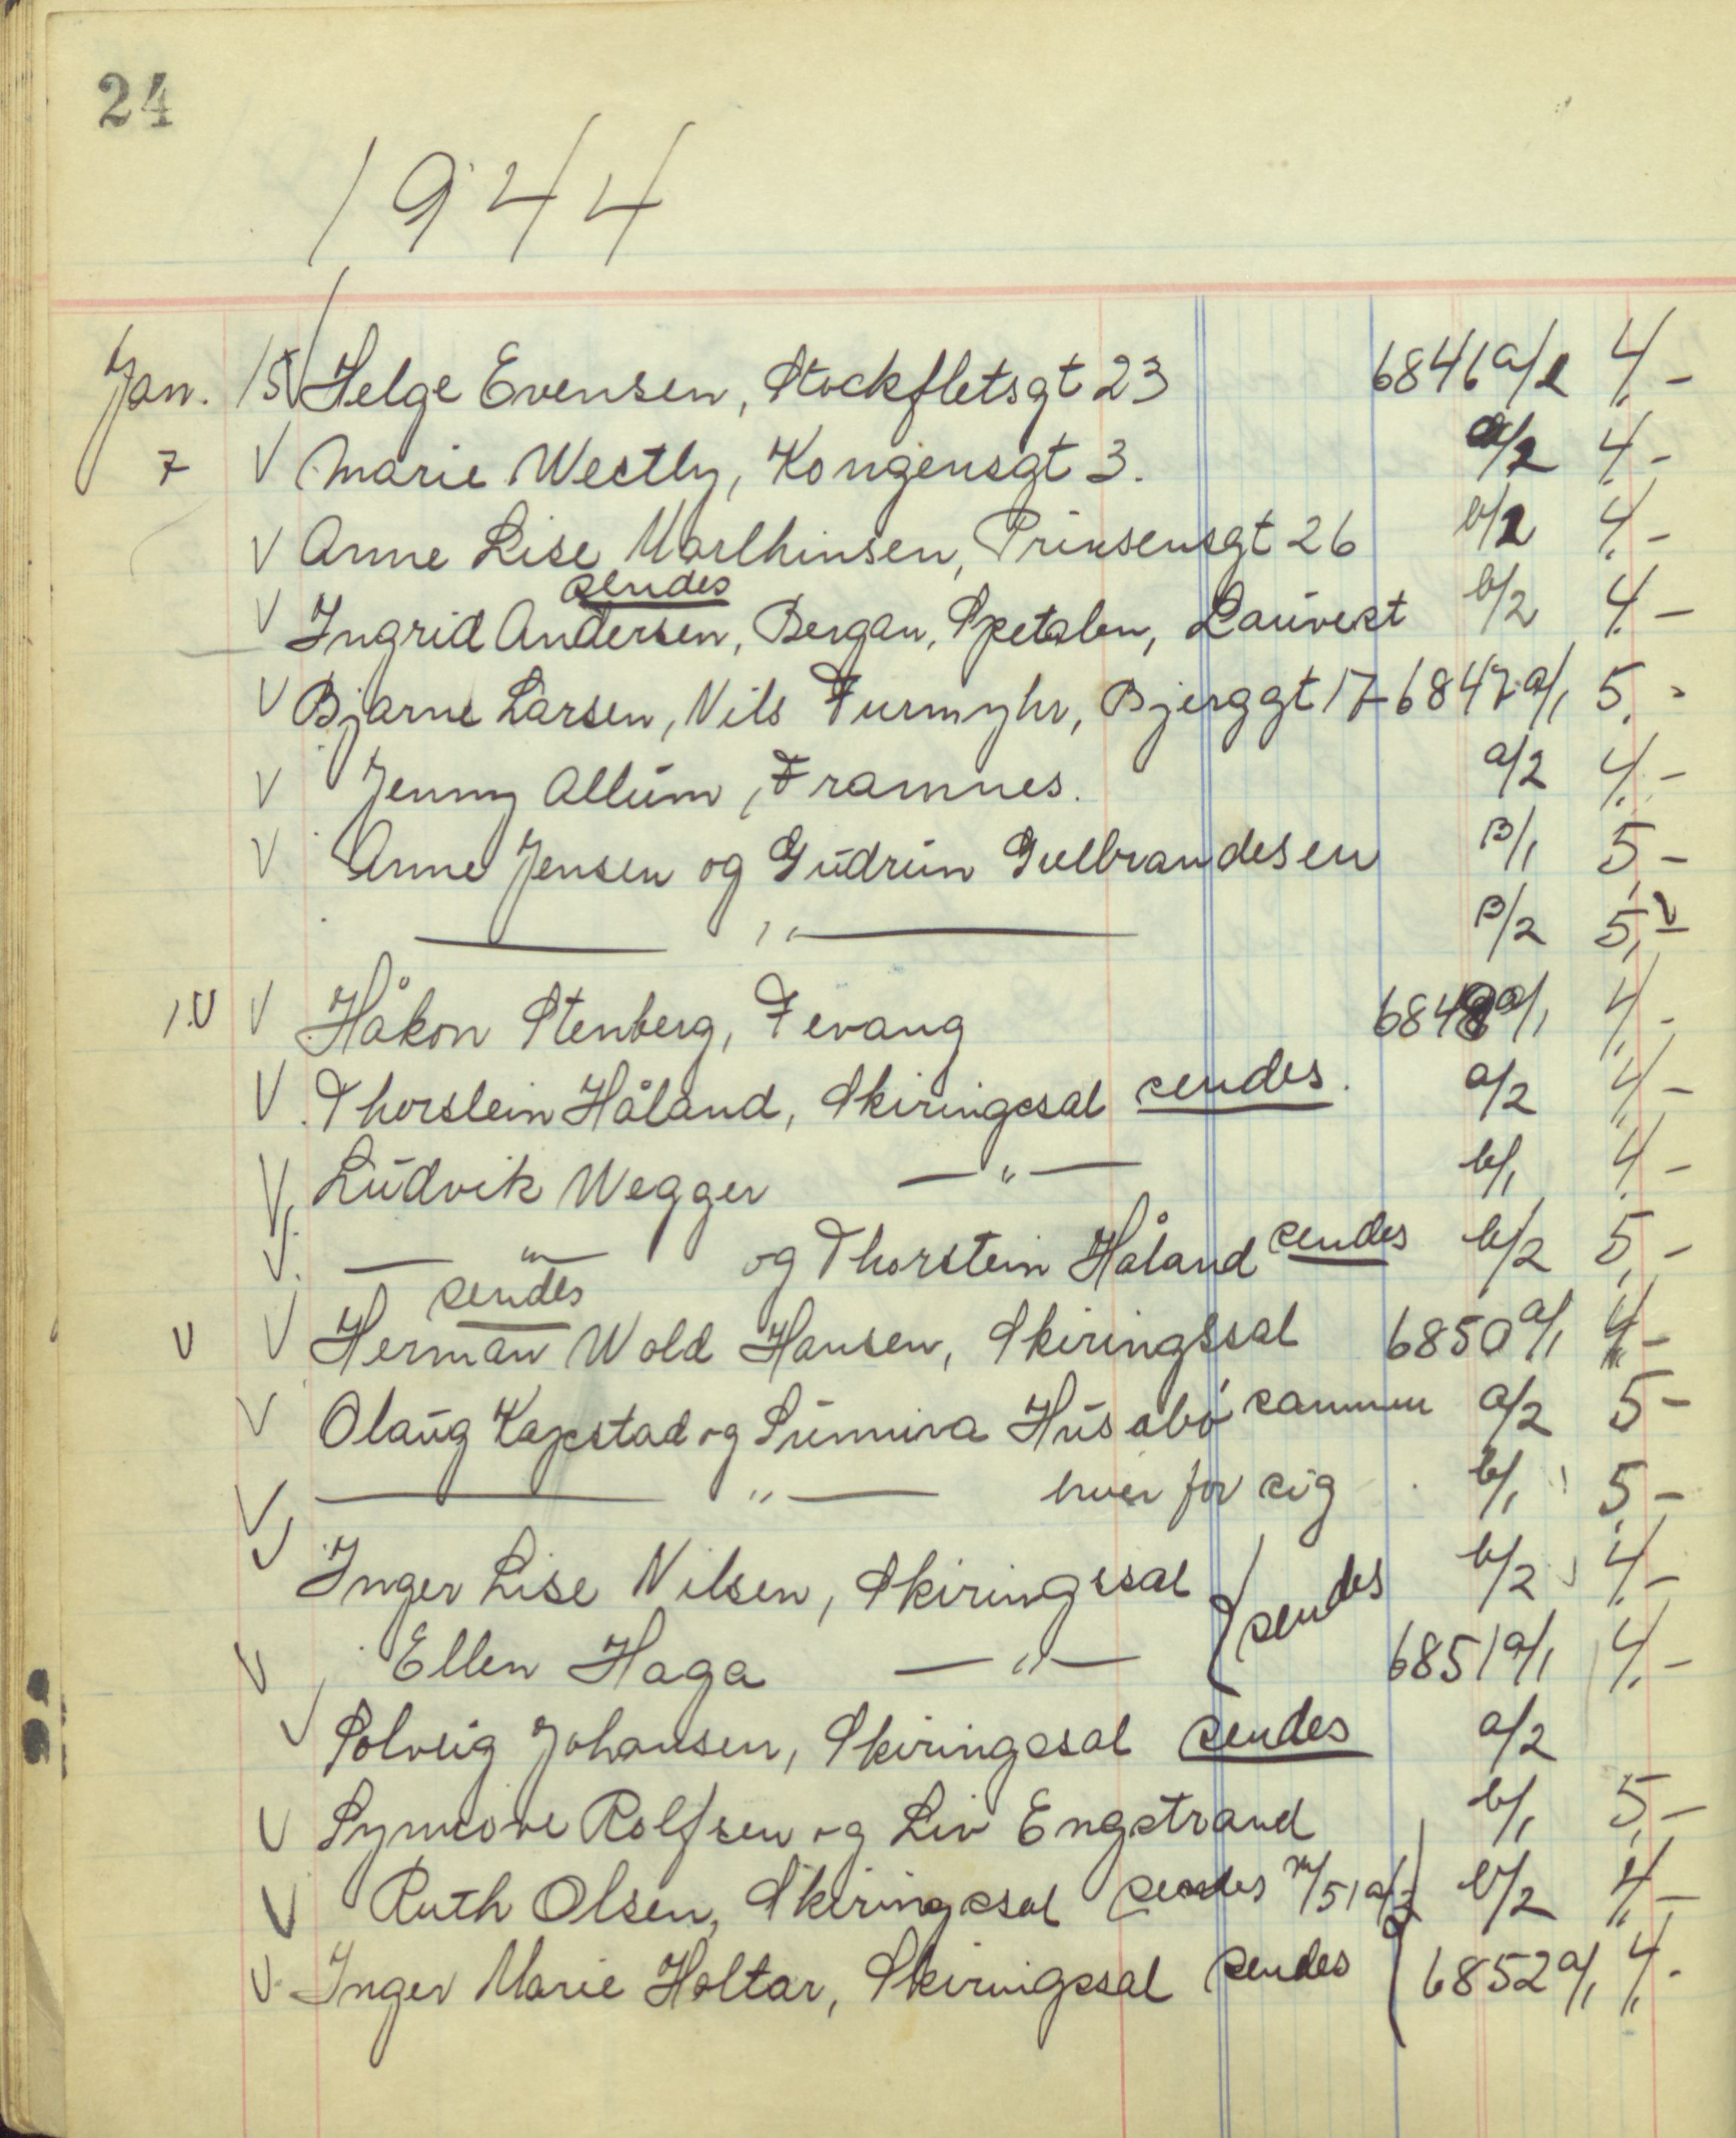 24
1944
Jan. 15 Helge Evensen, Stockfletsgt 23 6846 a/2 4,-
7 V Marie Westly, Kongensgt 3. a/2 4,-
V Anne Lise Marthinsen, Prinsensgt 26 b/2 4,-
sendes
V Ingrid Andersen, Bergan, Spetalen, Lauvest b/2 4,-
V Bjarne Larsen, Nils Furmyhr, Bjerggt 17 6847 a/1 5,-
V Jenny Allum, Framnes. a/2 4,-
V Anne Jensen og Gudrun Gulbrandsen B/1 5,-
— " — B/2 5,-
V Håkon Stenberg, Fevang 6848 a/1 4,-
V Thorstein Håland, Skiringssal sendes. a/2 4,-
V Ludvik Wegger — " — b/1 4,-
V — " — og Thorstein Håland sendes b/2 5,-
sendes
V V Herman Wold Hansen, Skiringssal 6850 a/1 4,-
V Olaug Kapstad og Sunniva Husabø sammen a/2 5-
V — " — hver for sig b/1 5,-
V Inger Lise Nilsen, Skiringssal sendes b/2 4,-
V Ellen Haga — " — 6851 a/1 4,-
V Solveig Johansen, Skiringssal sendes a/2
V Synnøve Rolfsen og Liv Engstrand b/1 5,-
V Ruth Olsen, Skiringssal sendes b/2 4,-
V Inger Marie Holtar, Skiringssal sendes 6852 a/1 4,-